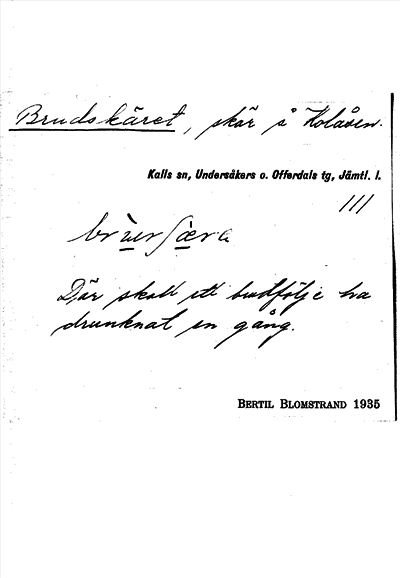 Brudskäret, skär i Kolåsen.
Kalls sn, Undersåkers o. Offerdals tg, Jämtl. l.
111
Där skall ett brudfölje ha
drunknat en gång.
BERTIL BLOMSTRAND 1935